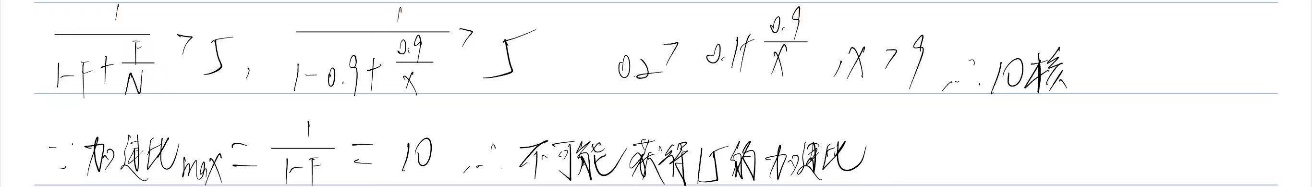 1/(1-F+F/N) > 5, 1/(1-0.9+0.9/x) > 5 0.2 > 0.1+0.9/x , x > 9 ∴ 10核
∵ 加速比max = 1/(1-F) = 10 ∴ 不可能获得15的加速比